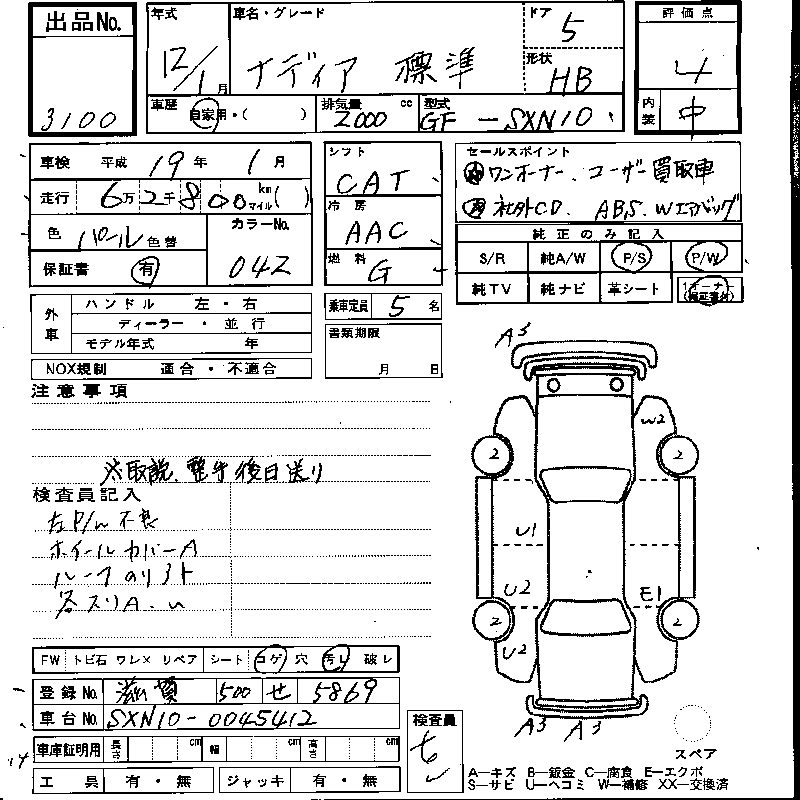 出品No. 3100
年式 12/1月
車名・グレード ナディア 標準
ドア 5
形状 HB
評価点 4
内装 中
車歴 自家用・( )
排気量 2000 cc
型式 GF-SXN10
車検 平成 19年 1月
走行 6万2千800 km マイル( )
色 パール 色替
カラーNo. 042
保証書 有
シフト CAT
冷房 AAC
燃料 G
乗車定員 5名
書類期限 月 日
セールスポイント
ワンオーナー、ユーザー買取車
社外CD、ABS、Wエアバッグ
純正のみ記入
S/R 純A/W P/S P/W
純TV 純ナビ 革シート
外車
ハンドル 左・右
ディーラー・並行
モデル年式 年
NOX規制 適合・不適合
注意事項
※取説、整手後日送り
検査員記入
左P/w不良
ホイールカバーA
各スリA、u
A3
W2
2 2
U1
U2 E1
2 2
U2
A3 A3
スペア
FW トビ石 ワレ× リペア シート コゲ 穴 汚レ 破レ
登録No. 滋賀 500 せ 5869
車台No. SXN10-0045412
車庫証明用 長さ cm 幅 cm 高さ cm
工具 有・無 ジャッキ 有・無
検査員
A―キズ B―鈑金 C―腐食 E―エクボ
S―サビ U―ヘコミ W―補修 XX―交換済